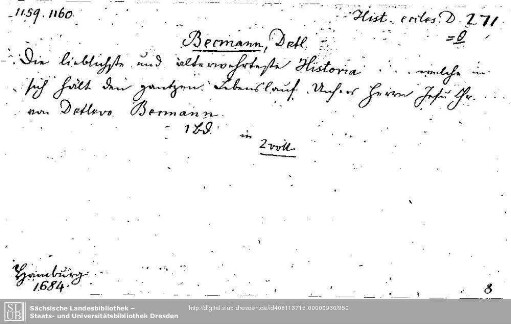 1159. 1160.
Hist. eccles. D. 271
=8
Becmann, Detl.
Die lieblichste und allerwehrteste Historia welche in
sich hält den gantzen Lebenslauf Unsers Herrn Jesu Chr.
von Detlevo Becmann
1 Bd. in
2 voll.
Hamburg
1684.
8
SLUB
Sächsische Landesbibliothek –
Staats- und Universitätsbibliothek Dresden